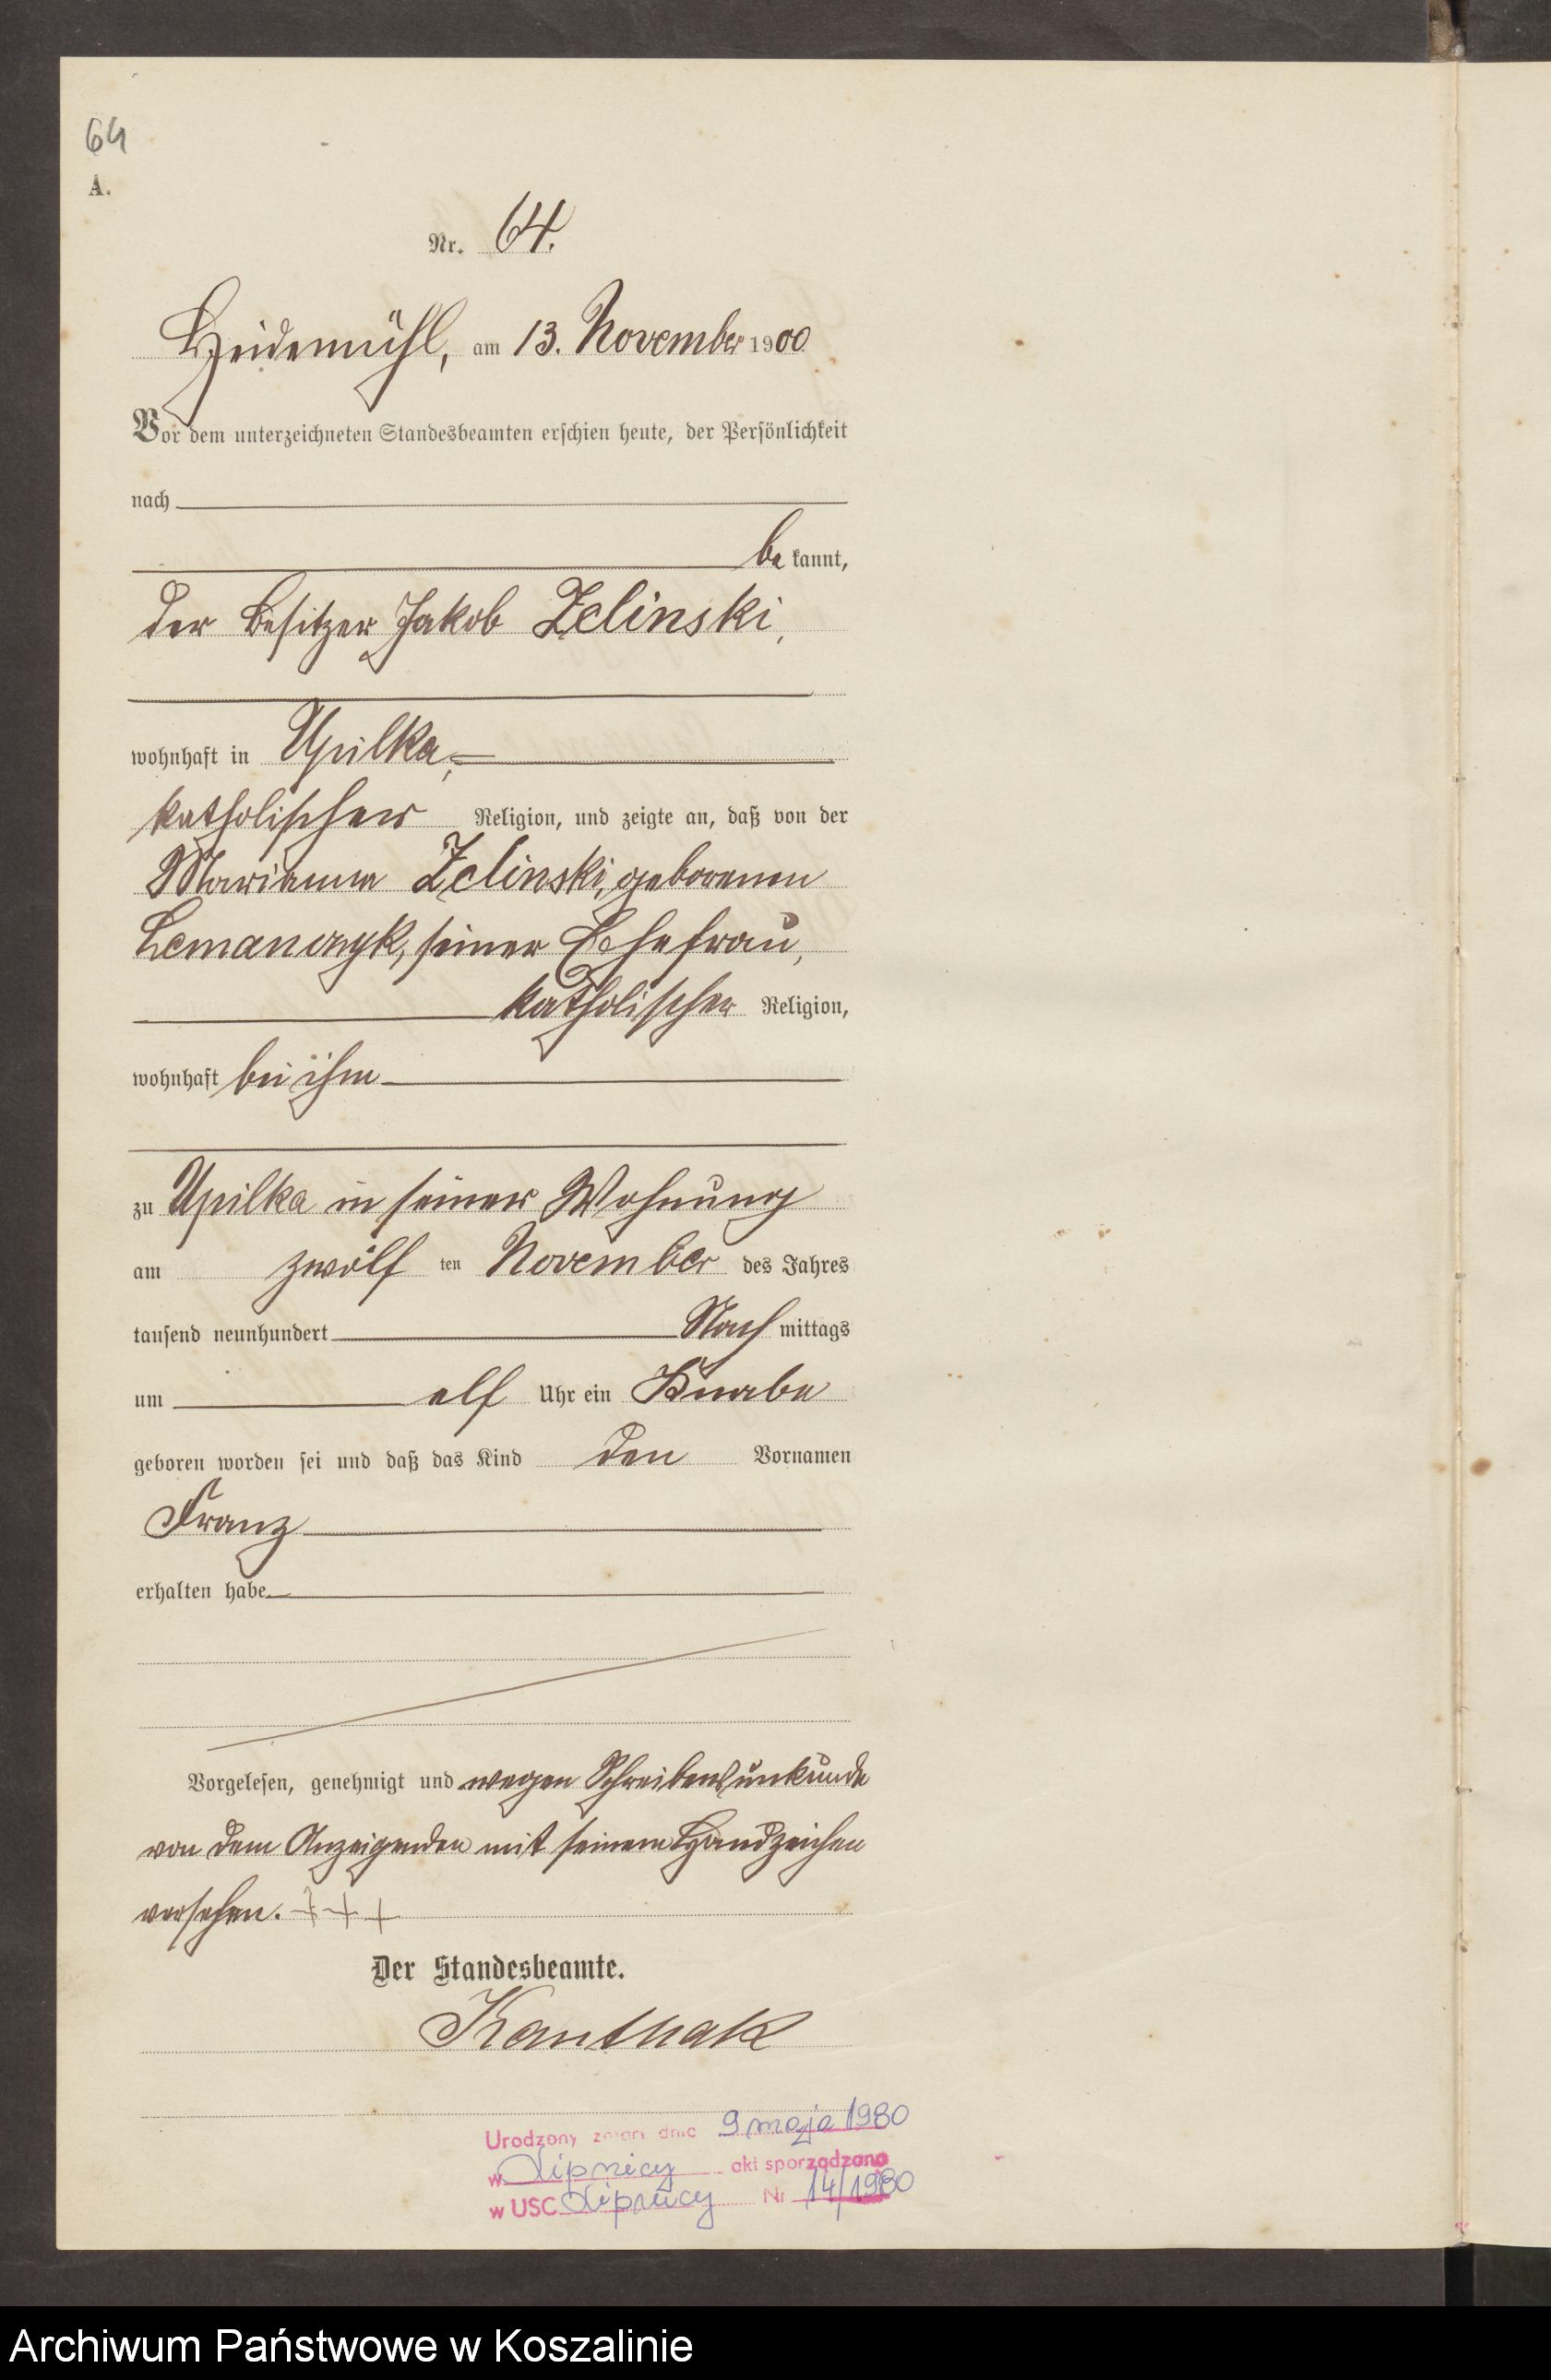 64
A.
Nr. 64.
Heidemühl, am 13. November 1900
Vor dem unterzeichneten Standesbeamten erschien heute, der Persönlichkeit
nach
be kannt,
der Besitzer Jakob Zelinski,
wohnhaft in Upilka,
katholischer Religion, und zeigte an, daß von der
Marianna Zelinski, geborenen
Lemanczyk, seiner Ehefrau,
katholischer Religion,
wohnhaft bei ihm
zu Upilka in seiner Wohnung
am zwölf ten November des Jahres
tausend neunhundert Nach mittags
um elf Uhr ein Knabe
geboren worden sei und daß das Kind den Vornamen
Franz
erhalten habe.
Vorgelesen, genehmigt und wegen Schreibensunkunde
von dem Anzeigenden mit seinem Handzeichen
versehen. + + +
Der Standesbeamte.
Kanthak
Urodzony zmarł dnia 9 maja 1980
w Lipnicy akt sporządzono
w USC Lipnicy Nr 14/1980
Archiwum Państwowe w Koszalinie